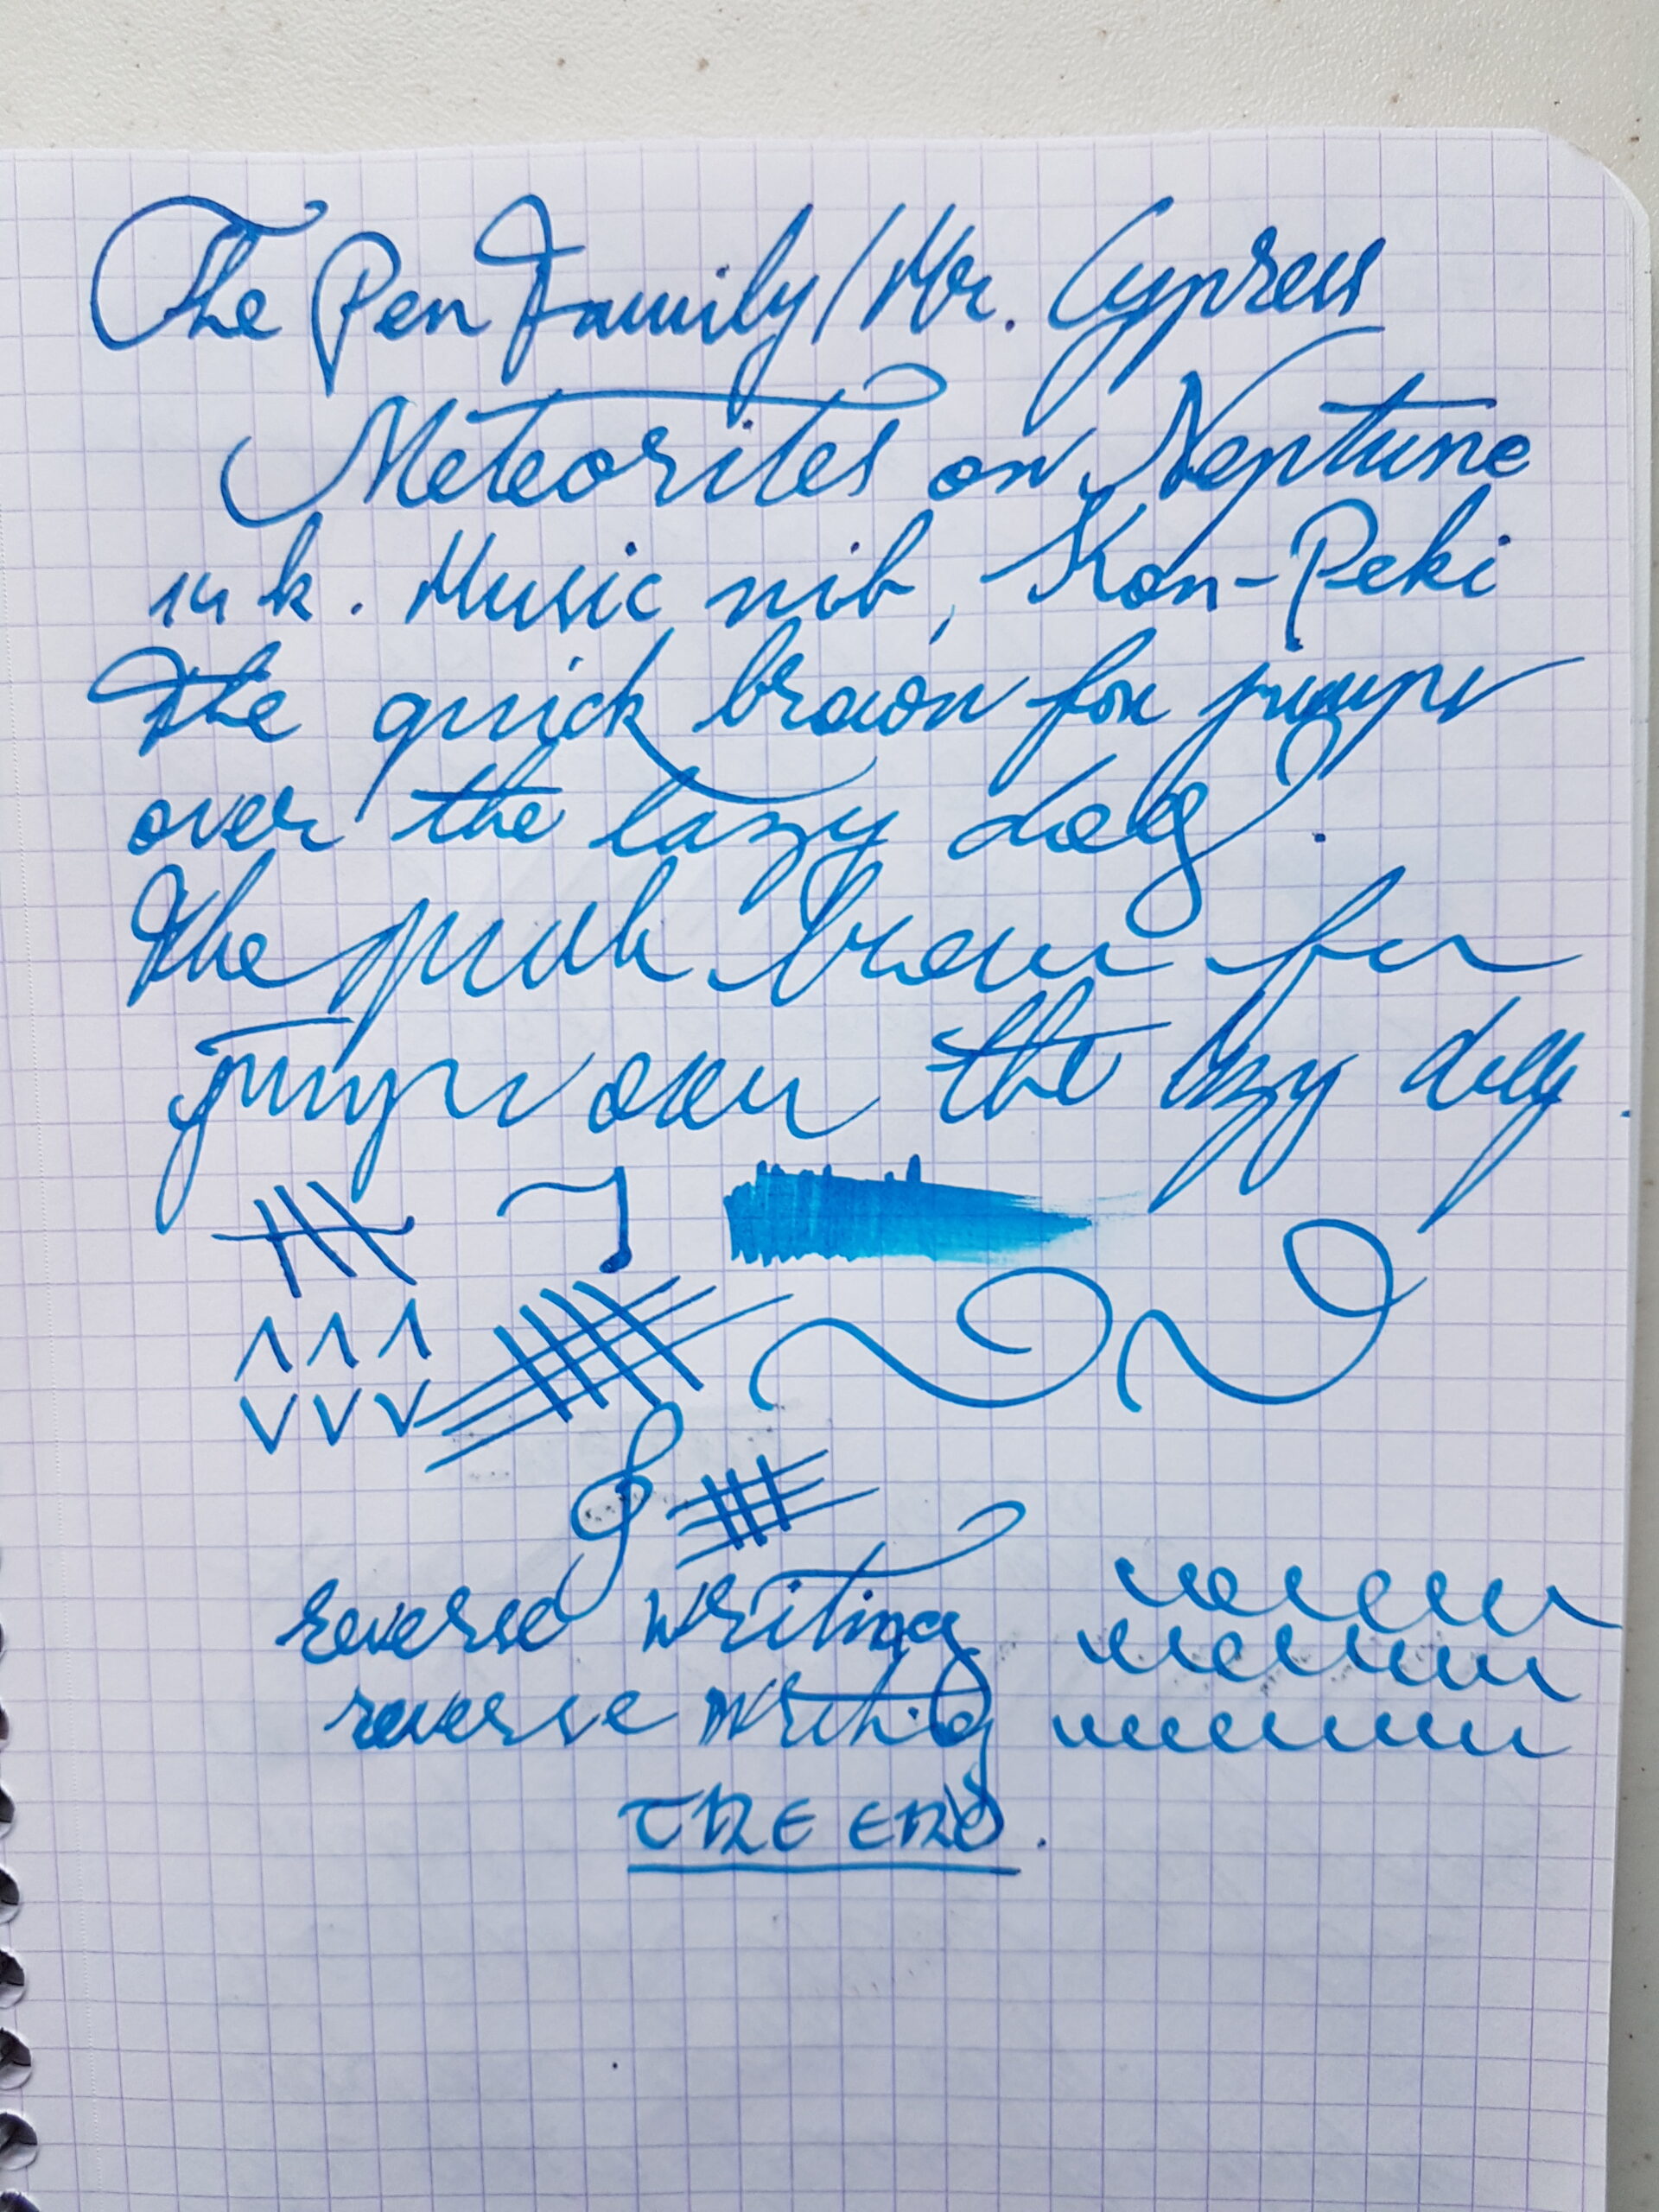 The Pen Family/Mr. Cypress
Meteorites on Neptune
14 k. Music nib, Kon-Peki
The quick brown fox jumps
over the lazy dog.
The quick brown fox
jumps over the lazy dog.
reverse writing
reverse writing
THE END.